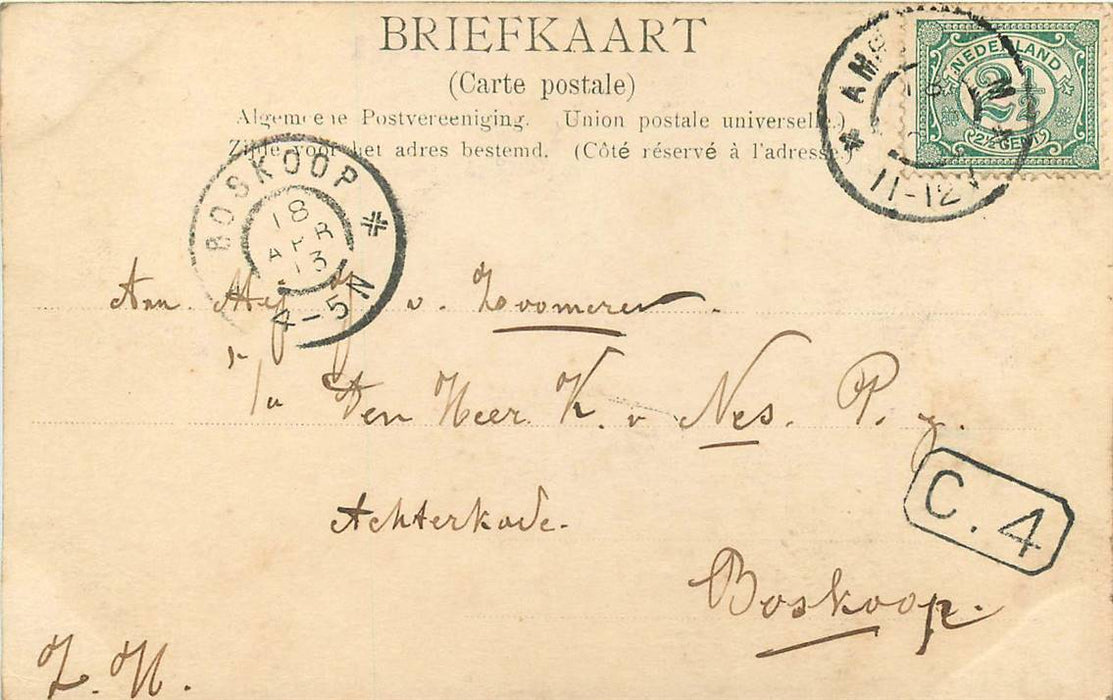 BRIEFKAART
(Carte postale)
Algemeene Postvereeniging. Union postale universelle.)
Zijde voor het adres bestemd. (Côté réservé à l'adresse.)
NEDERLAND
2½
2½ CENT
AM
11-12V
BOSKOOP
18
APR
13
4-5N
Aan Mej v. Zoomeren.
Den Heer K. v Nes. P. z.
Achterkade.
C.4
Boskoop.
Z. H.